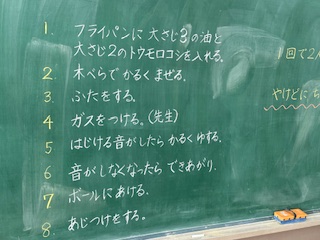 1. フライパンに 大さじ3の油と
大さじ2のトウモロコシを入れる。
2. 木べらで かるく まぜる。
3. ふたをする。
4 ガスをつける。(先生)
5 はじける音がしたら かるく ゆする.
6 音がしなくなったら できあがり.
7 ボールにあける.
8. あじつけをする。
1回で2人
やけどに、ち